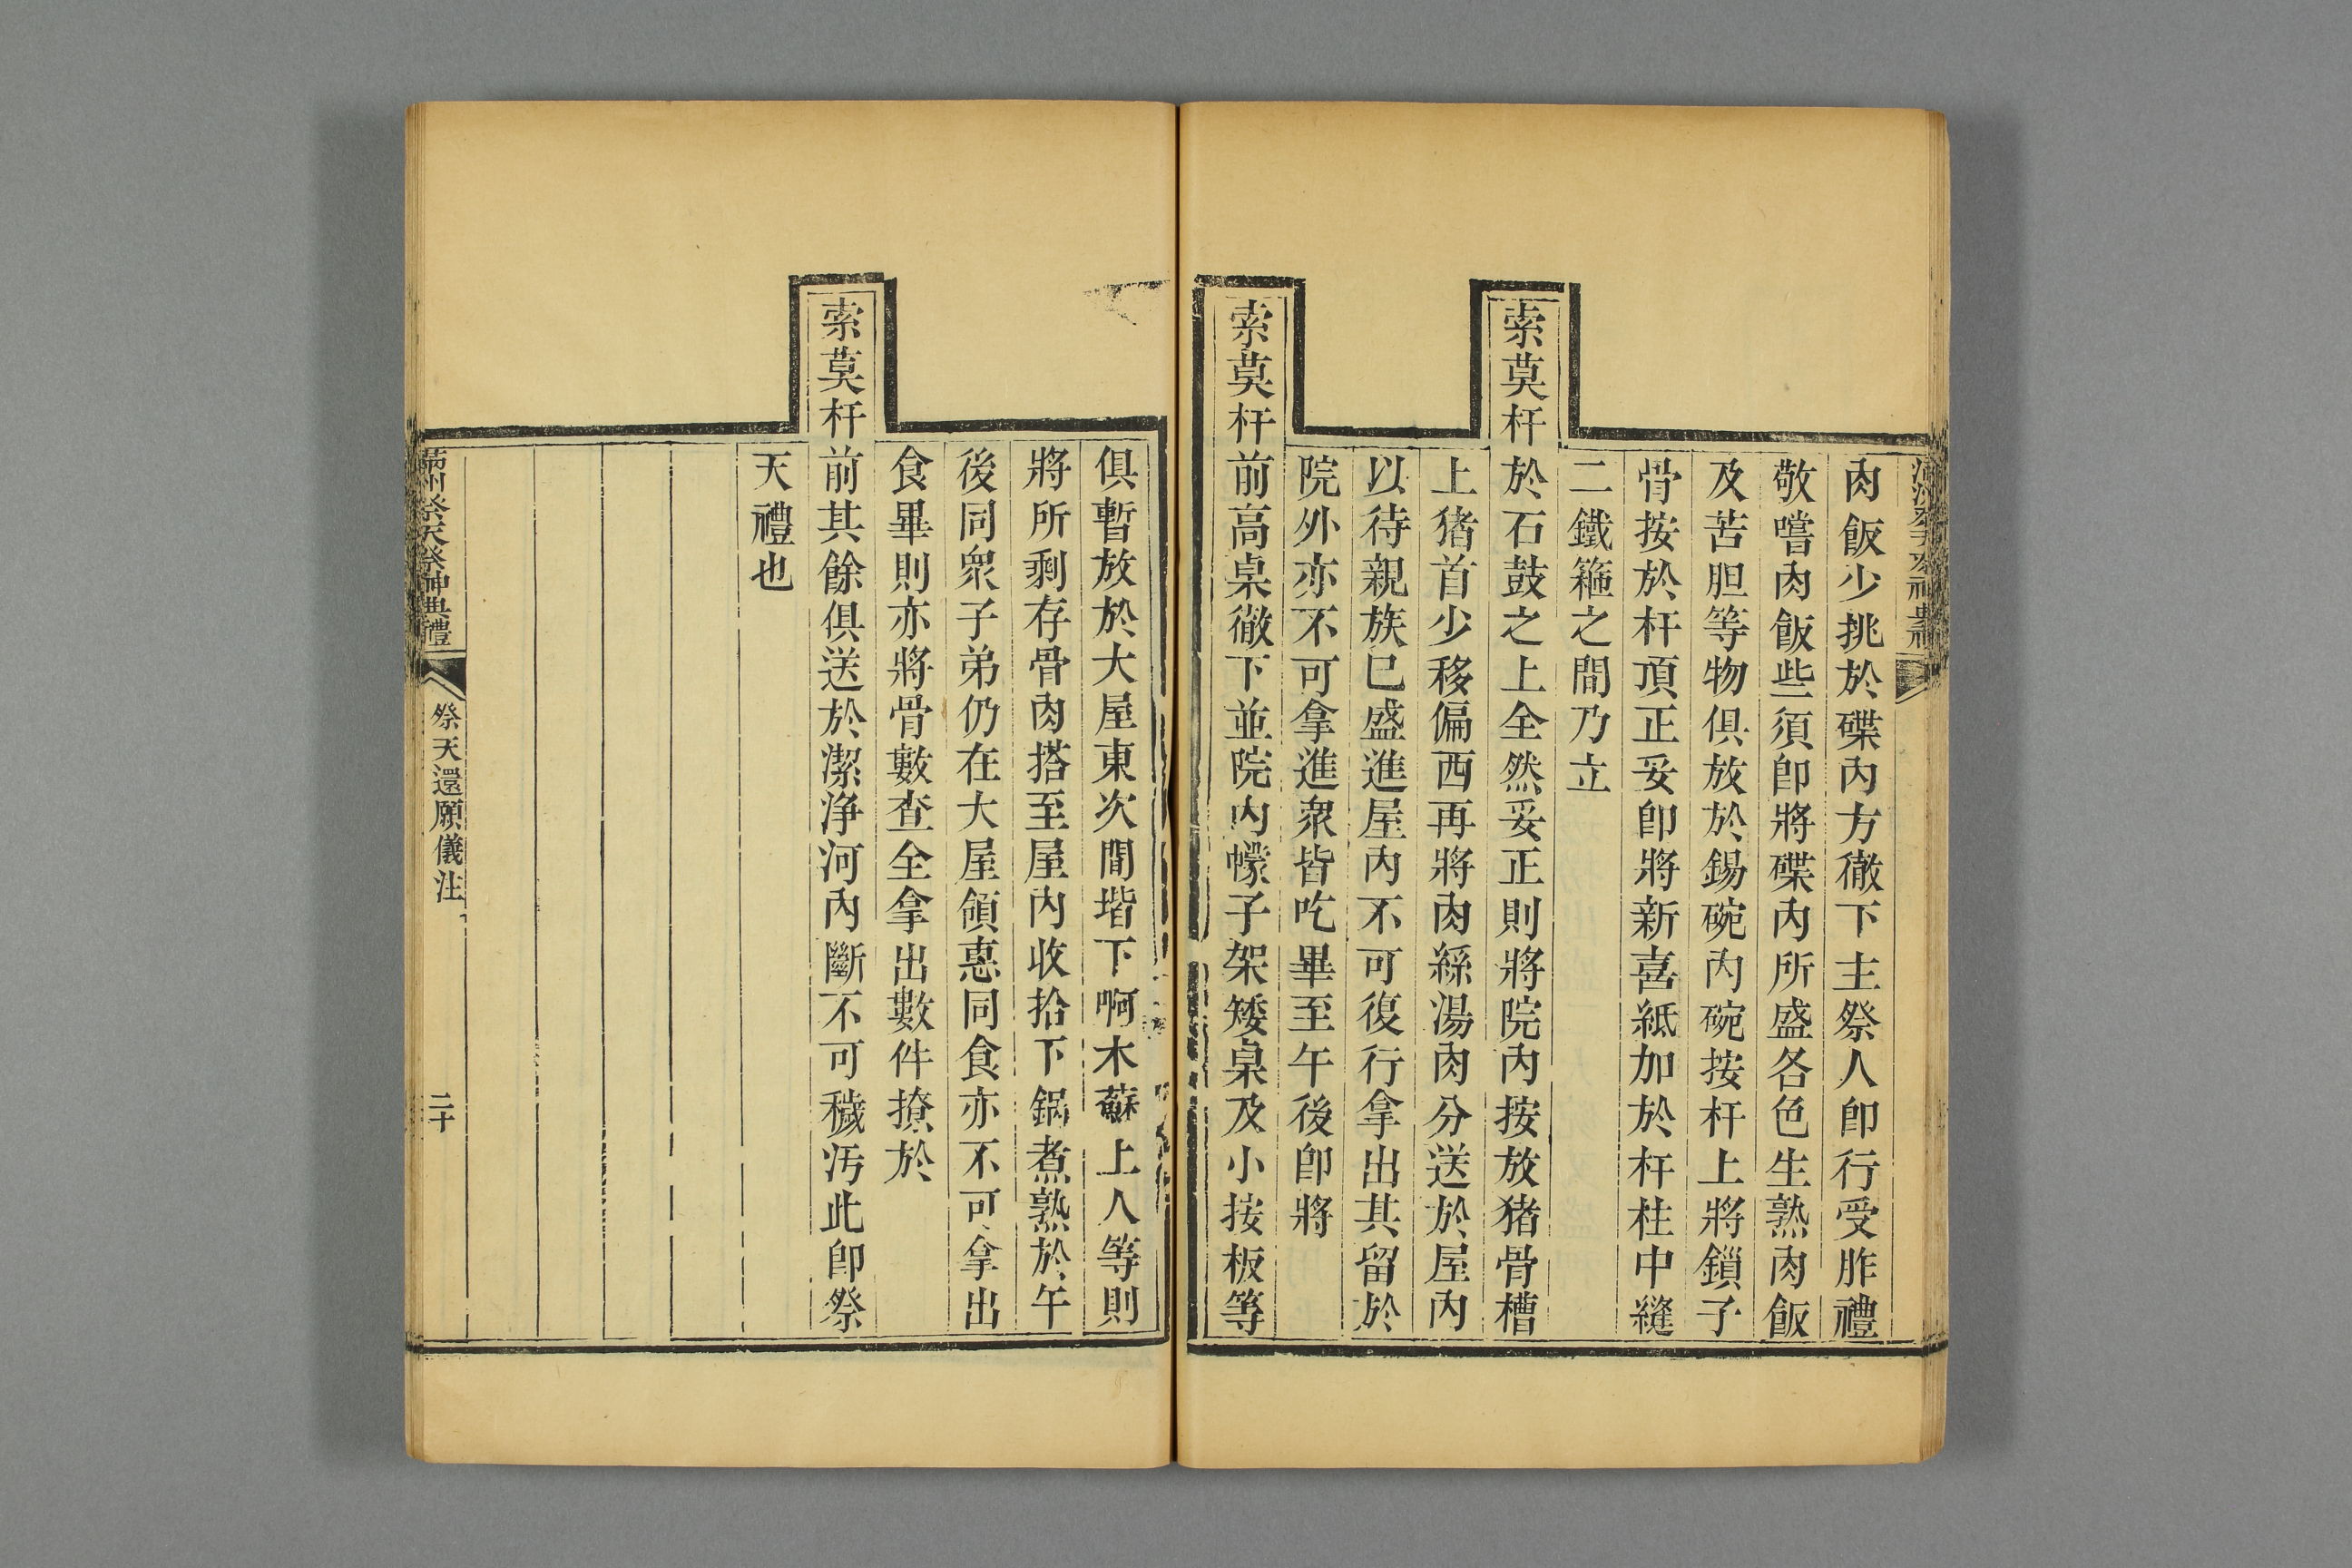 肉飯少挑於碟內方徹下主祭人卽行受胙禮
敬嚐肉飯些須卽將碟內所盛各色生熟肉飯
及苦胆等物俱放於錫碗內碗按杆上將鎖子
骨按於杆頂正妥卽將新喜紙加於杆柱中縫
二鐵箍之間乃立
索莫杆於石鼓之上全然妥正則將院內按放猪骨槽
上猪首少移偏西再將肉絲湯肉分送於屋內
以待親族已盛進屋內不可復行拿出其留於
院外亦不可拿進衆皆吃畢至午後卽將
索莫杆前高桌徹下並院內幪子架矮桌及小按板等
俱暫放於大屋東次間堦下啊木蘇上人等則
將所剩存骨肉搭至屋內收拾下鍋煮熟於午
後同衆子弟仍在大屋領惠同食亦不可拿出
食畢則亦將骨數查全拿出數件撩於
索莫杆前其餘俱送於潔净河內斷不可穢汚此卽祭
天禮也
滿洲祭天祭神典禮
祭天還願儀注
二十